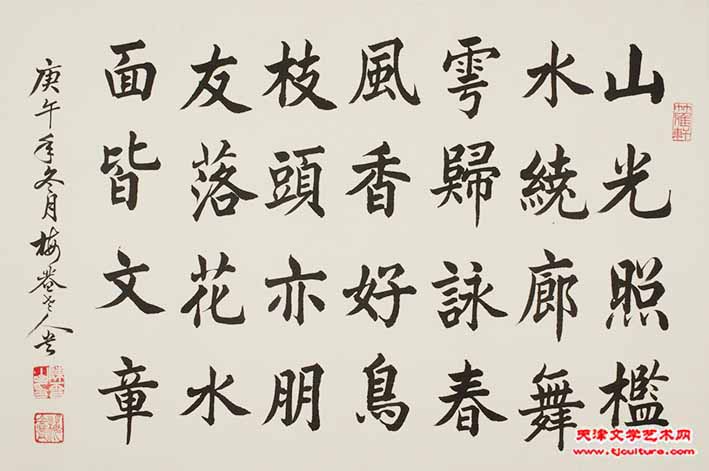 山光照檻
水繞廊舞
雩歸詠春
風香好鳥
枝頭亦朋
友落花水
面皆文章
庚午年冬月梅菴老人書
天津文学艺术网
www.tjculture.com